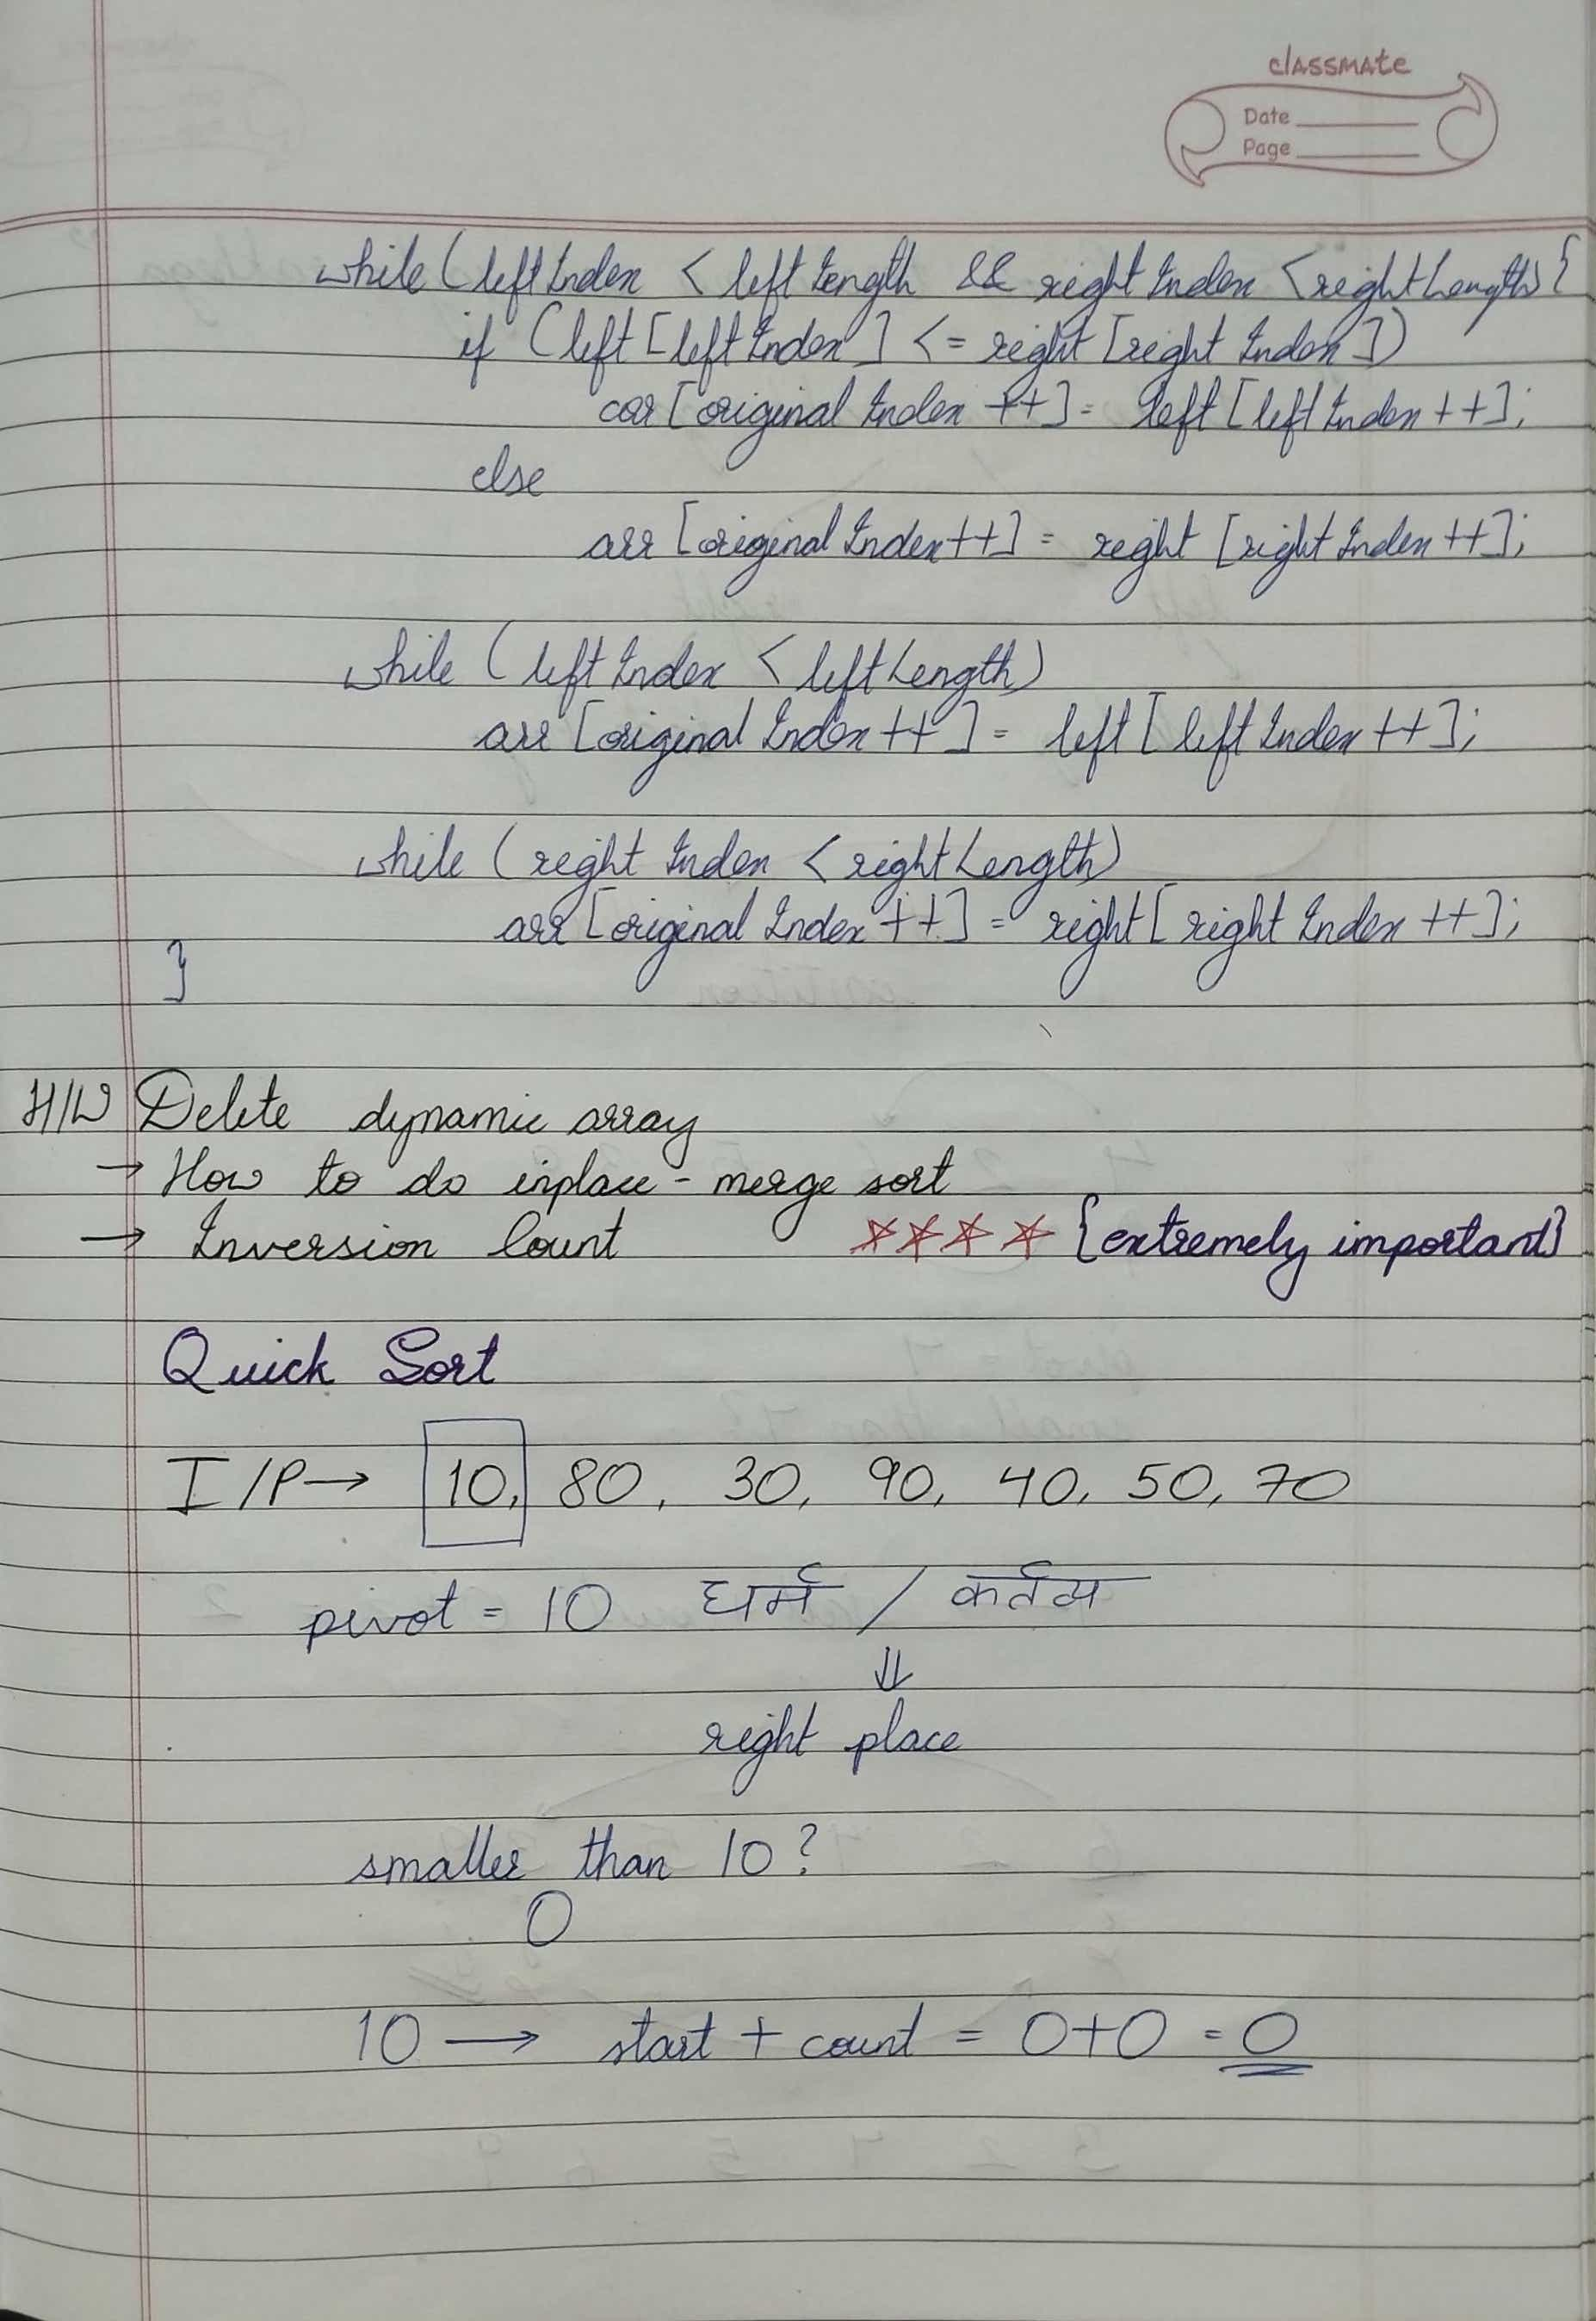 classmate
Date
Page
while (leftIndex < leftLength && rightIndex < rightLength) {
if (left [leftIndex] <= right [rightIndex])
arr [originalIndex ++] = left [leftIndex ++];
else
arr [originalIndex ++] = right [rightIndex ++];
while (leftIndex < leftLength)
arr [originalIndex ++] = left [leftIndex ++];
while (rightIndex < rightLength)
arr [originalIndex ++] = right [rightIndex ++];
}
H/W Delete dynamic array
→ How to do inplace - merge sort
→ Inversion Count **** {extremely important}
Quick Sort
I/P → 10, 80, 30, 90, 40, 50, 70
pivot = 10 धर्म / कर्तव्य
⇓
right place
smaller than 10?
0
10 → start + count = 0+0 = 0